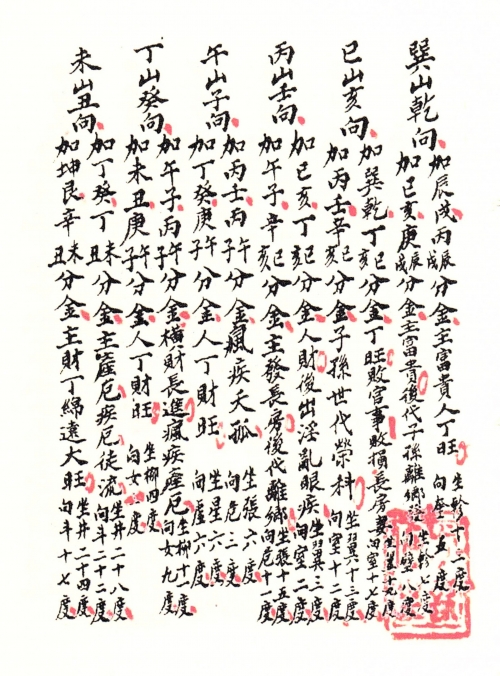 巽山乾向加辰戌丙戌辰分金主富貴人丁旺坐軫十一度向奎五度
加巳亥庚戌辰分金主富貴後代子孫離鄉坐軫七度向壁八度
巳山亥向加巽乾丁亥巳分金丁旺敗官事敗損長房坐翼十九度向室十七度
加丙壬辛亥巳分金子孫世代榮科坐翼六十三度向室十二度
丙山壬向加巳亥丁亥巳分金人財後出淫亂眼疾坐翼三度向室二度
加午子辛亥巳分金主發長房後代離鄉坐張十五度向危十二度
午山子向加丙壬丙子午分金瘋疾夭孤坐張六度向危三度
加丁癸庚子午分金人丁財旺坐星六度向虛六度
丁山癸向加午子丙子午分金橫財長進瘋疾瘟厄坐柳十度向女九度
加未丑庚子午分金人丁財旺坐柳四度向女二度
未山丑向加丁癸丁丑未分金主瘟厄疾厄徒流坐井二十八度向斗二十二度
加坤艮辛丑未分金主財丁綿遠大旺坐井二十四度向斗十七度